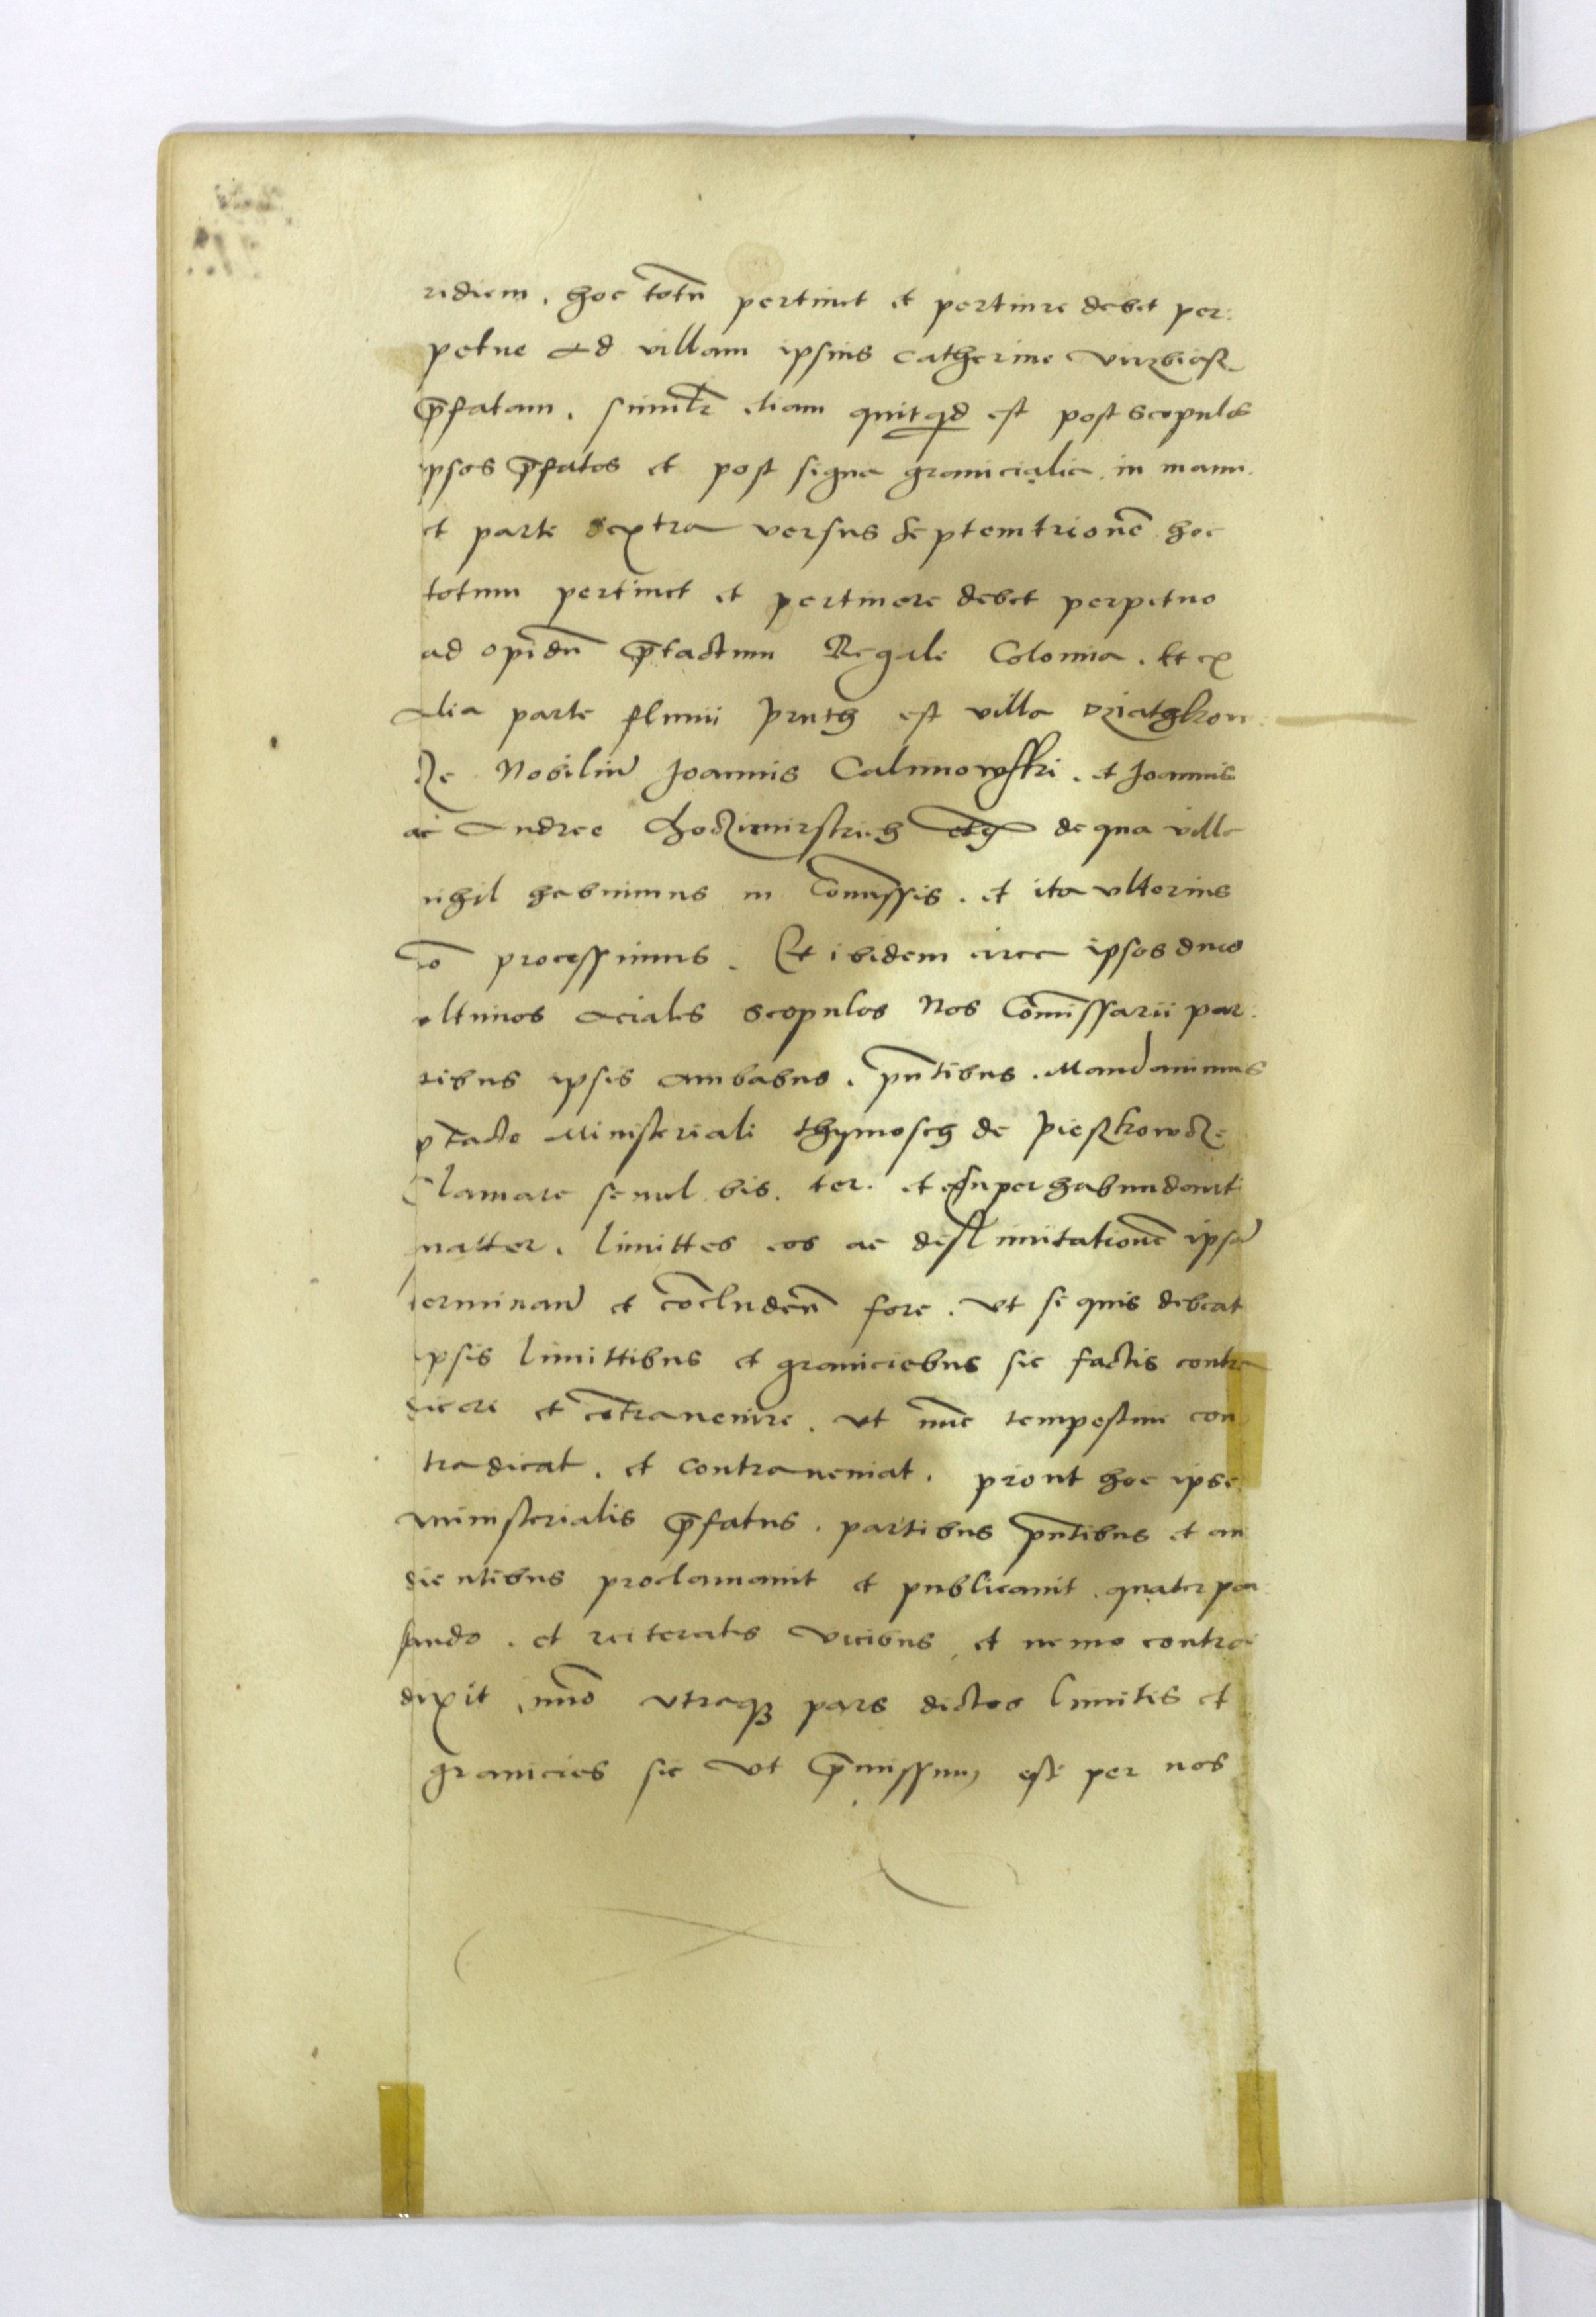 ridiem, hoc totū pertinet et pertinere debet per:
petue ad villam ipsius Catherine Virzbiasz
p̄fatam. similr̄ etiam quitqd est post scopulos
ipsos p̄fatos et post signa granicialia, in manu
et parte dextra versus septemtrionē hoc
totum pertinet et pertinere debet perpetuo
ad opidū p̄tactum Regale Colomia. Et ex
alia parte fluuii Pruth est villa Dziathkow:
cze Nobiliū Joannis Calinowsski. et Joannis
ac Andree Choczimirskich de qua villa
nihil habuimus in Comissis. et ita vlterius
nō processimus. Et ibidem circa ipsos duos
vltimos aciales scopulos Nos Comīssarii par:
tibus ipsis ambabus. pn̄tibus. Mandauimus
p̄tacto Ministeriali Thymosch de Pieszkowcze
Clamare semel bis. ter. et superhabundanti
natter. limittes eos ac deslimitationē ipsā
terminan̄ et cōcluden̄ fore. Vt si quis debeat
ipsis limittibus et graniciebus sic factis contra
dicere et cōtrauenire. vt nūc tempestiue con
tradicat. et contraueniat. prout hoc ipse
ministerialis p̄fatus. partibus pn̄tibus et au
dientibus proclamauit et publicauit. quater pau:
sando. et reiteratis vicibus, et nemo contra
dixit, imō vtraqȝ pars dictos limites et
granicies sic vt p̄missum est per nos